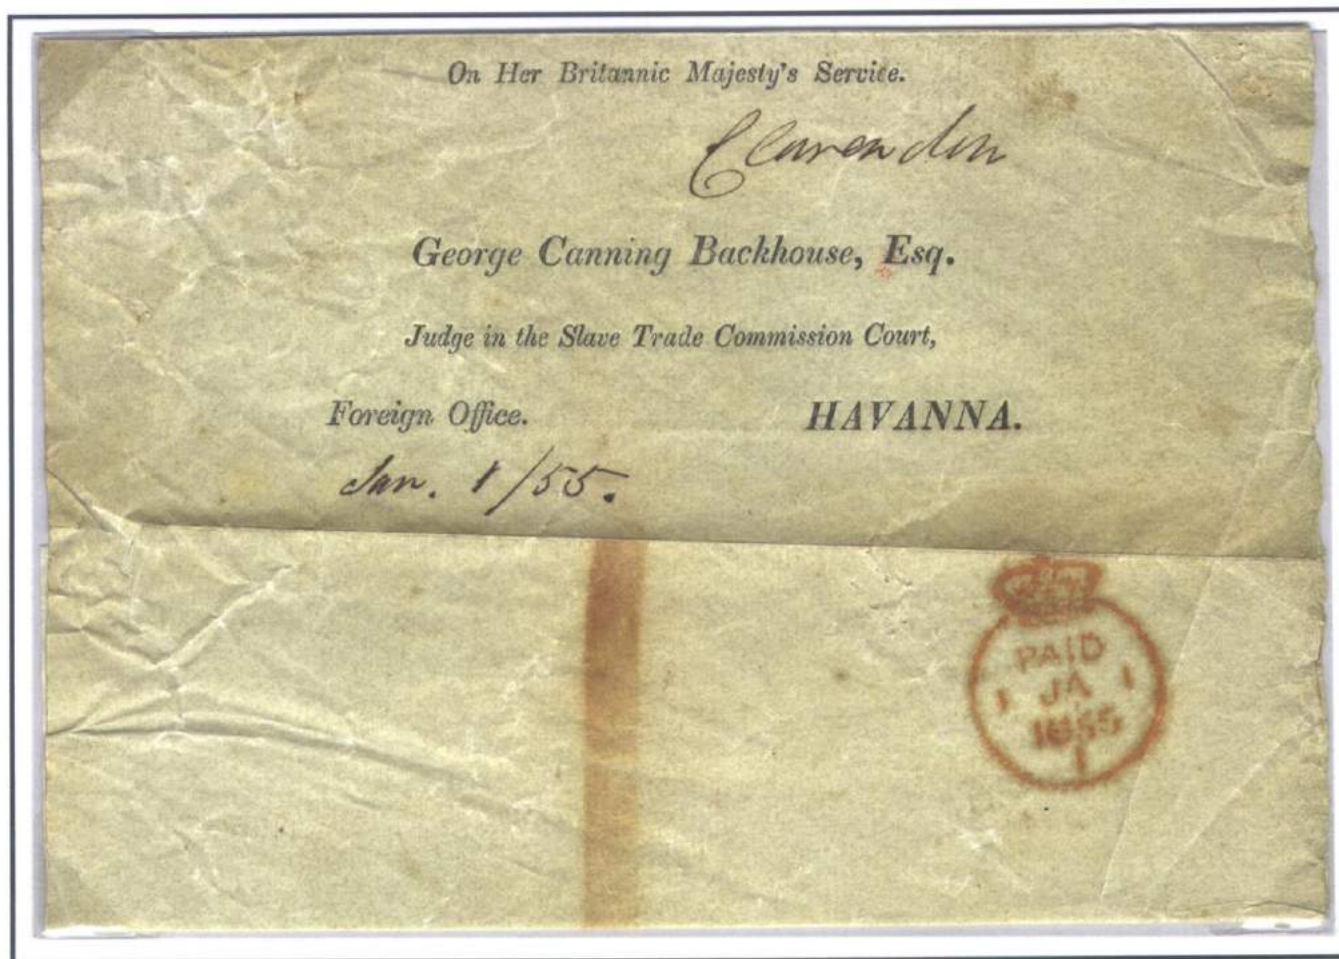 On Her Britannic Majesty's Service.
Clarendon
George Canning Backhouse, Esq.
Judge in the Slave Trade Commission Court,
Foreign Office. HAVANNA.
Jan. 1/55.
PAID
1 JA 1
1855